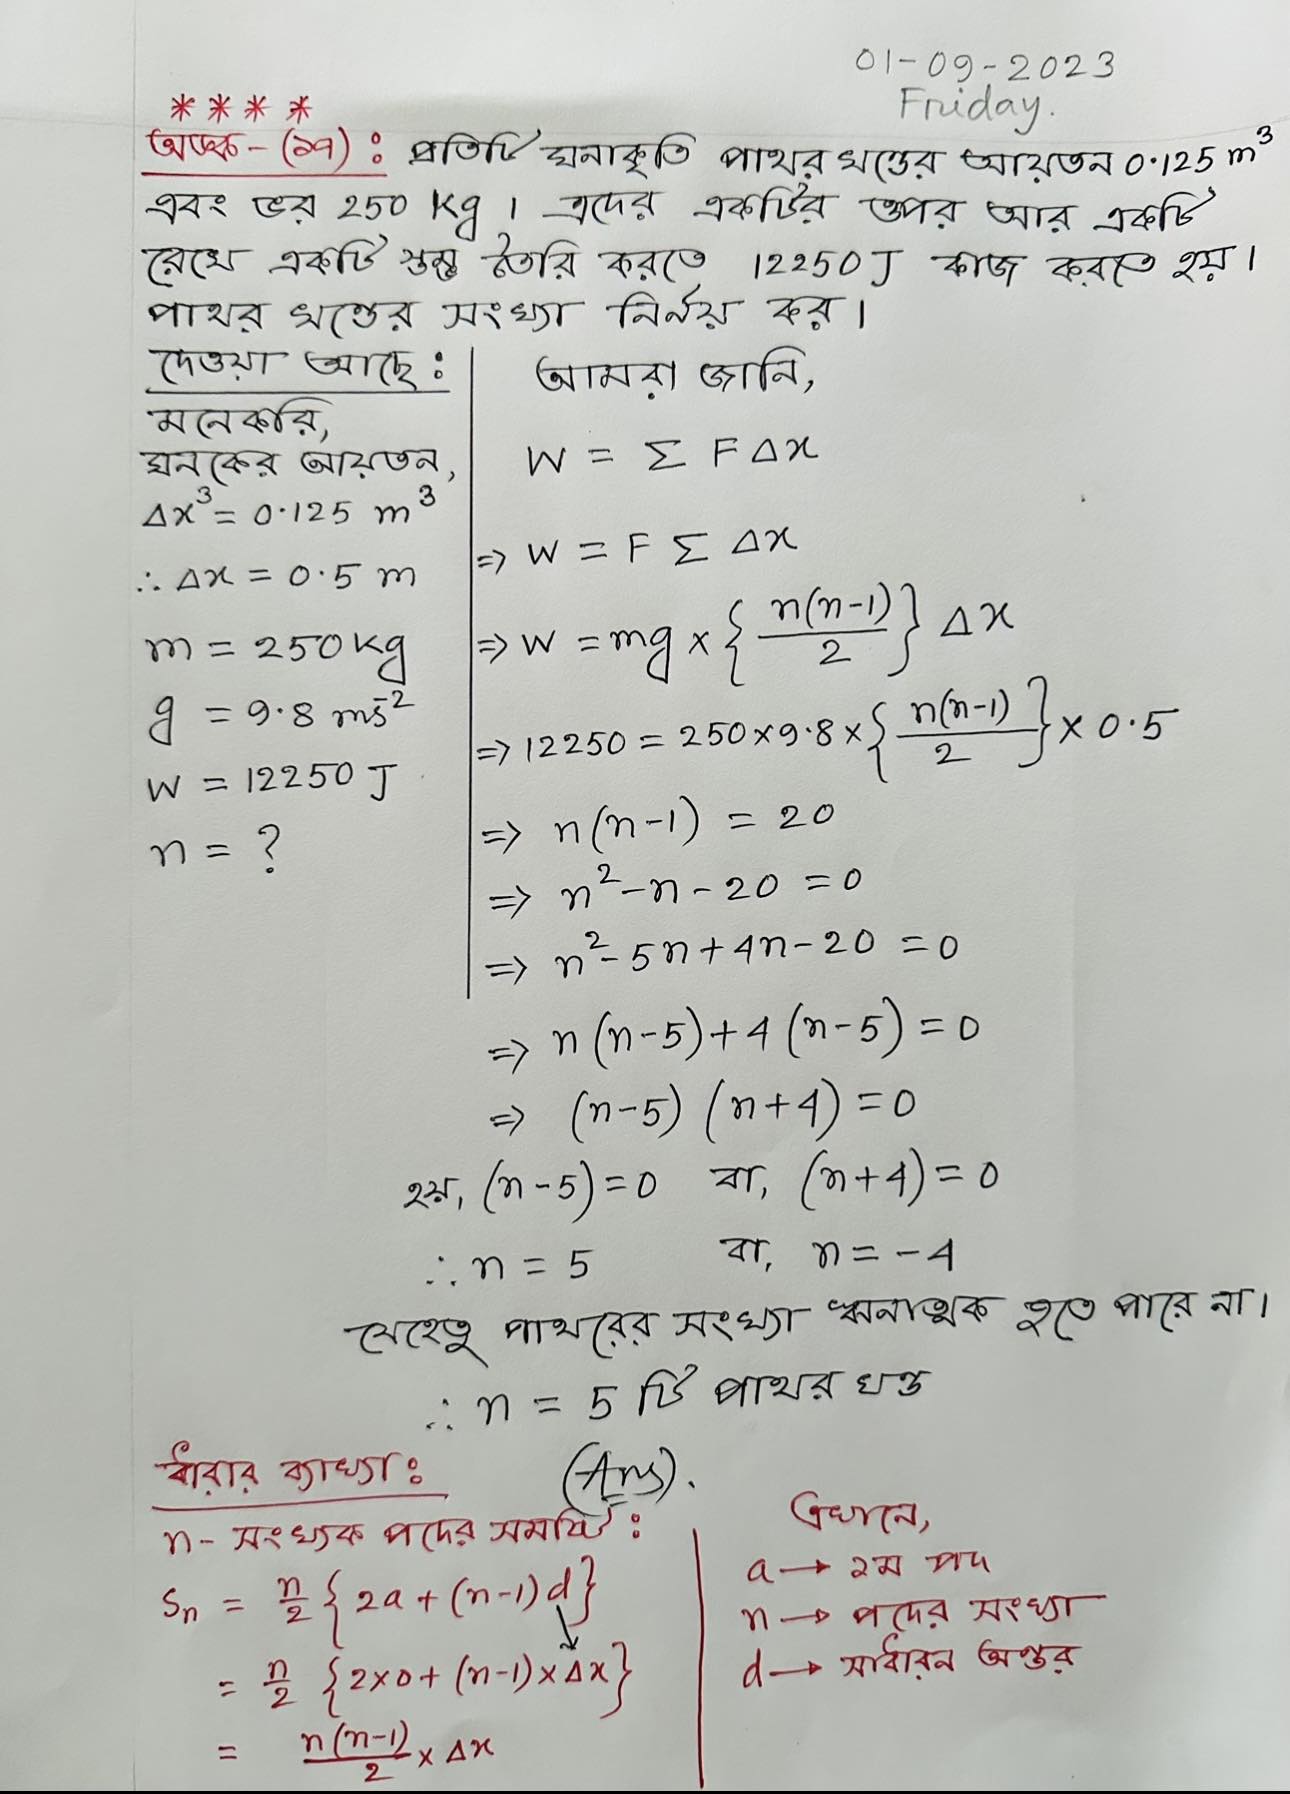 01-09-2023
Friday.
****
অঙ্ক-(১৭): প্রতিটি ঘনাকৃতি পাথর খন্ডের আয়তন 0.125 m³
এবং ভর 250 kg। এদের একটির ওপর আর একটি
রেখে একটি স্তম্ভ তৈরি করতে 12250J কাজ করতে হয়।
পাথর খন্ডের সংখ্যা নির্নয় কর।
দেওয়া আছে:
মনেকরি,
ঘনকের আয়তন,
Δx³ = 0.125 m³
∴ Δx = 0.5 m
m = 250kg
g = 9.8 ms⁻²
W = 12250 J
n = ?
আমরা জানি,
W = Σ FΔx
=> W = F Σ Δx
=> W = mg × {n(n-1)/2} Δx
=> 12250 = 250×9.8×{n(n-1)/2}×0.5
=> n(n-1) = 20
=> n²-n-20 = 0
=> n²-5n+4n-20 = 0
=> n(n-5)+4(n-5) = 0
=> (n-5) (n+4) = 0
হয়, (n-5)=0 বা, (n+4)=0
∴ n = 5 বা, n = -4
যেহেতু পাথরের সংখ্যা ঋনাত্মক হতে পারে না।
∴ n = 5 টি পাথর খন্ড
(Ans).
ধারার ব্যাখ্যা:
n- সংখ্যক পদের সমষ্টি:
Sn = n/2 {2a + (n-1)d}
= n/2 {2×0+(n-1)×Δx}
= n(n-1)/2 × Δx
এখানে,
a → ১ম পদ
n → পদের সংখ্যা
d → সাধারন অন্তর